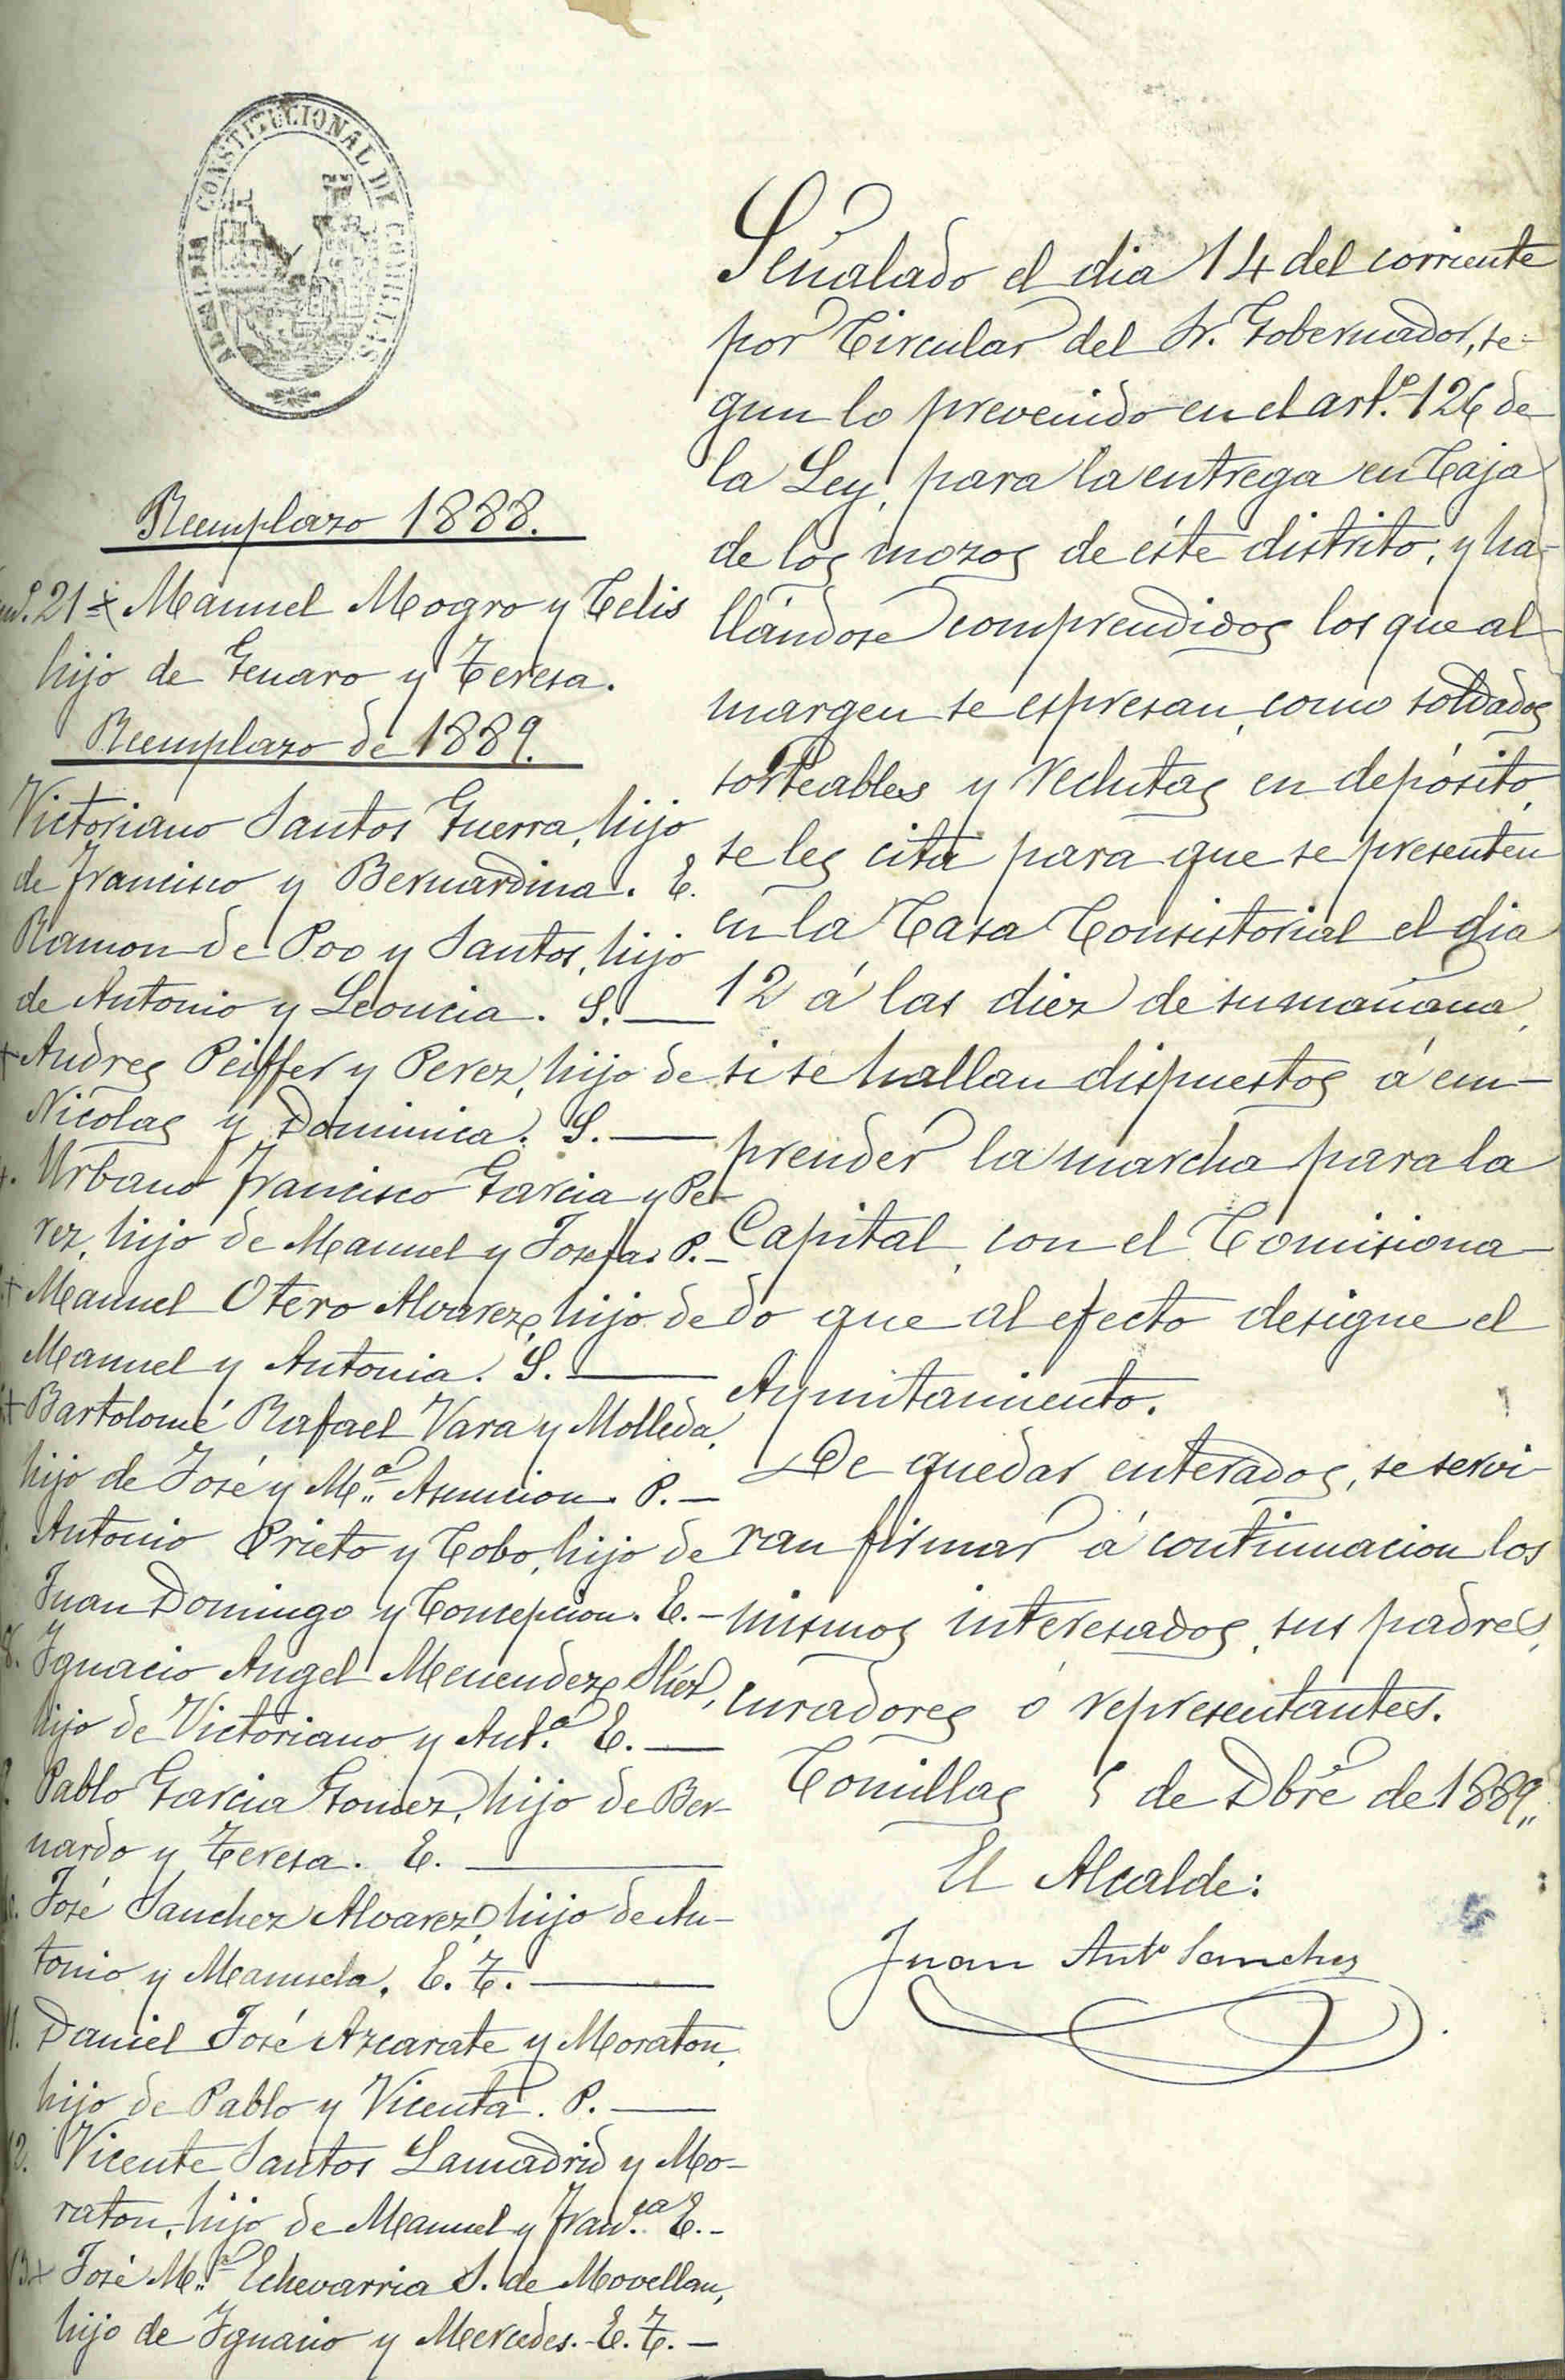 ALCALDIA CONSTITUCIONAL DE COMILLAS
Reemplazo 1888.
21 x Manuel Mogro y Celis
hijo de Genaro y Teresa.
Reemplazo de 1889.
Victoriano Santos Guerra, hijo
de Francisco y Bernardina. E.
Ramon de Poo y Santos, hijo
de Antonio y Leoncia. S. —
+ Andres Peiffer y Perez, hijo de
Nicolas y Dominica. S. —
Urbano Francisco Garcia y Pe-
rez, hijo de Manuel y Josefa. P. -
+ Manuel Otero Alvarez, hijo de
Manuel y Antonia. S. —
+ Bartolomé Rafael Vara y Molleda,
hijo de José y M.ª Asuncion. P. —
Antonio Prieto y Cobo, hijo de
Juan Domingo y Concepcion. E. -
8. Ignacio Angel Menendez
hijo de Victoriano y Ant.ª E. —
Pablo Garcia Gomez, hijo de Ber-
nardo y Teresa. E. —
José Sanchez Alvarez, hijo de An-
tonio y Manuela. E. T. —
11. Daniel José Azcarate y Moraton,
hijo de Pablo y Vicenta. P. —
12. Vicente Santos Lamadrid y Mo-
raton, hijo de Manuel y Fran.ca E. -
13 + José M.ª Echevarria S. de Movellan,
hijo de Ignacio y Mercedes. E. T. —
Señalado el dia 14 del corriente
por Circular del Sr. Gobernador, se-
gun lo prevenido en el art.º 126 de
la Ley, para la entrega en Caja
de los mozos de éste distrito; y ha-
llándose comprendidos los que al
margen se espresan, como soldados
sorteables y reclutas en depósito,
se les cita para que se presenten
en la Casa Consistorial el dia
12 á las diez de su mañana,
si se hallan dispuestos á em-
prender la marcha para la
Capital, con el Comisiona-
do que al efecto designe el
Ayuntamiento.
De quedar enterados, se servi-
ran firmar á continuacion los
mismos interesados, sus padres,
curadores ó representantes.
Comillas 5 de Dbre de 1889.
El Alcalde:
Juan Ant.º Sanchez